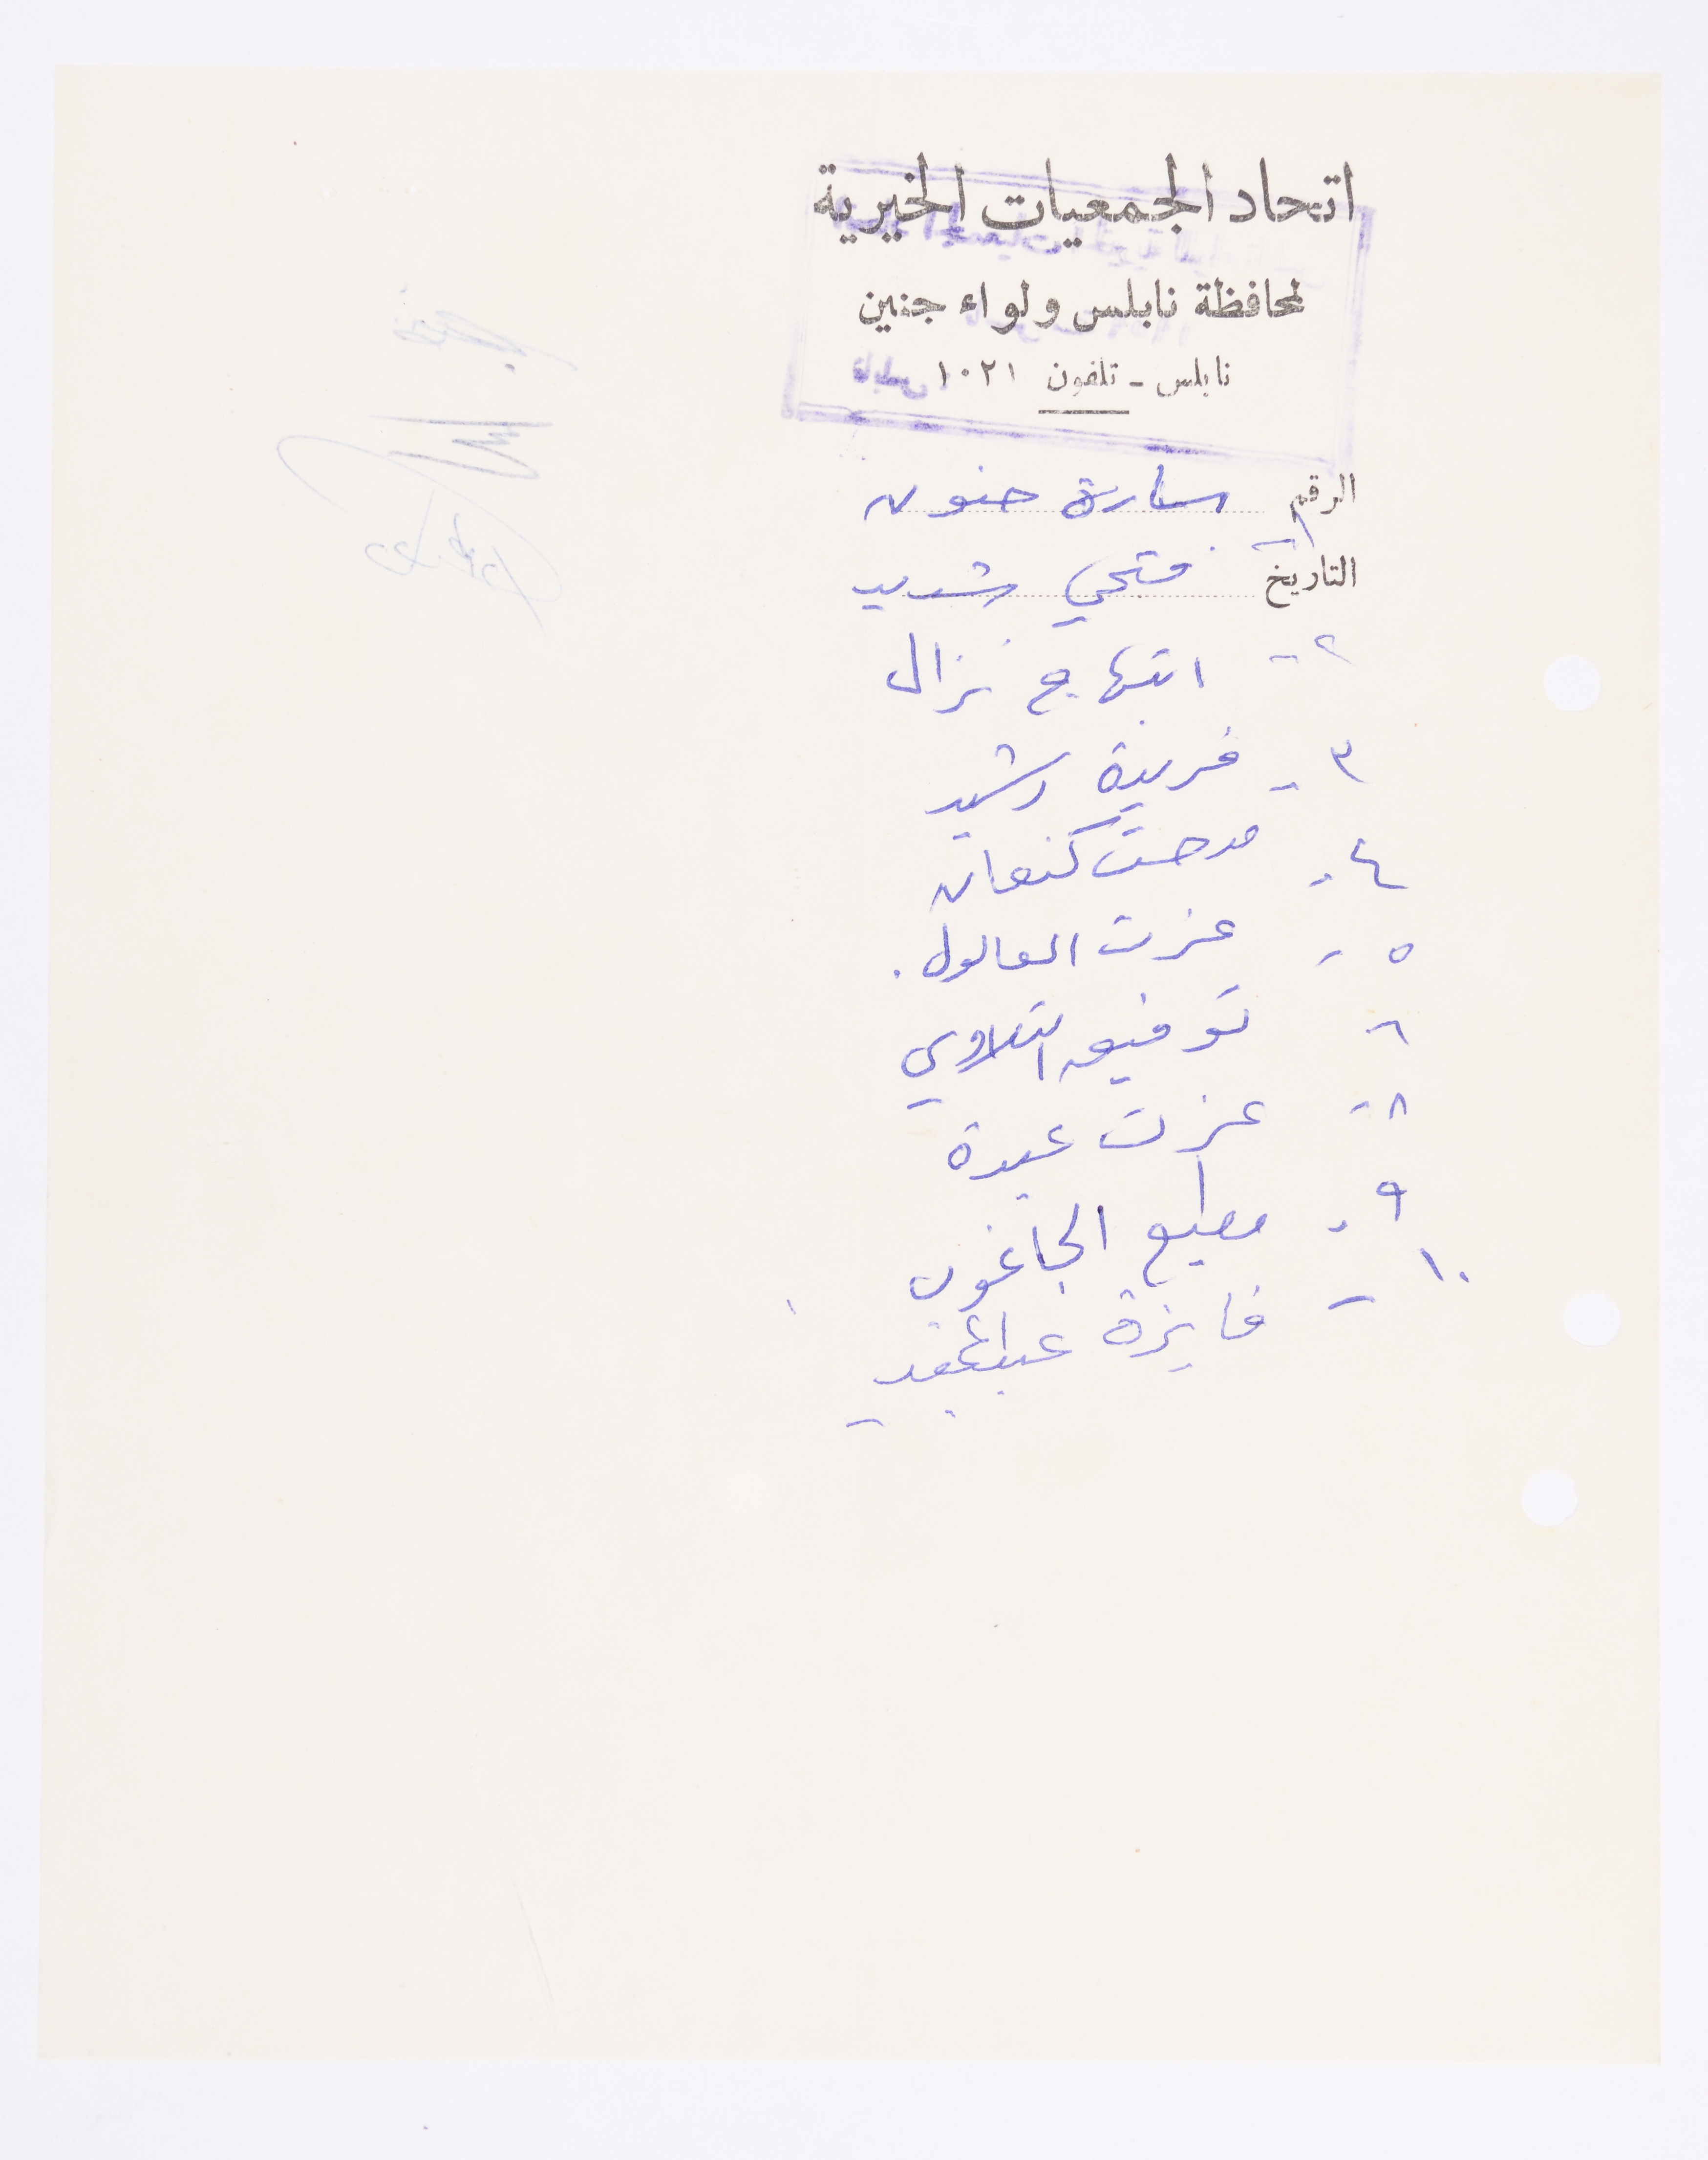 اتحاد الجمعيات الخيرية
لمحافظة نابلس ولواء جنين
نابلس - تلفون ١٠٢١
الرقم سارة حنون
التاريخ ١- فتحي شديد
٢- ابتهاج نزال
٣- فريدة رشيد
٤- مدحت كنعان
٥- عزت العالول.
٦- توفيق التلاوي
٨- عزت عبده
٩- مطيع الجاغوب
١٠- فايزة عبدالمجيد